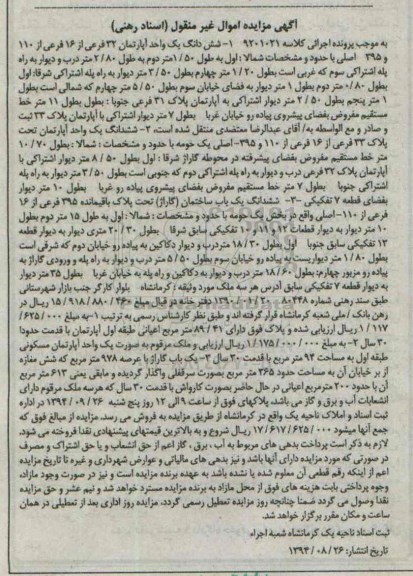 آگهی مزایده اموال غیر منقول (اسناد رهنی)
به موجب پرونده اجرائی کلاسه ۹۲۰۱۰۲۱ ۱- شش دانگ یک واحد آپارتمان ۳۲ فرعی از ۱۶ فرعی از ۱۱۰
و ۳۹۵ اصلی با حدود و مشخصات شمالا : اول به طول ۱/۵۰ متر دوم به طول ۲/۸۰ متر درب و دیوار به راه
پله اشتراکی سوم که غربی است بطول ۱/۲۰ متر چهارم بطول ۳/۵۰ متر دیوار به راه پله اشتراکی شرقا: اول
بطول ۰/۸۰ متر دوم بطول ۱ متر دیوار به فضای خیابان سوم بطول ۵/۵۰ متر چهارم که شمالی است بطول
۱ متر پنجم بطول ۲/۵۰ متر دیوار اشتراکی به آپارتمان پلاک ۳۱ فرعی جنوبا : بطول بطول ۱۱ متر خط
مستقیم مفروض بفضای پیشروی پیاده رو خیابان غربا بطول ۷ متر دیوار اشتراکی با آپارتمان پلاک ۳۳ ثبت
و صادر و مع الواسطه به/ آقای عبدالرضا معتضدی منتقل شده است، ۲- ششدانگ یک واحد آپارتمان تحت
پلاک ۳۳ فرعی از ۱۶ فرعی از ۱۱۰ و ۳۹۵- اصلی یک حومه با حدود و مشخصات : شمالا : بطول ۱۰/۷۰
متر خط مستقیم مفروض بفضای پیشرفته در محوطه گاراژ شرقا : اول بطول ۸/۵۰ متر دیوار اشتراکی با
آپارتمان پلاک ۳۲ فرعی درب و دیوار به راه پله اشتراکی دوم که جنوبی است بطول ۲/۵۰ متر دیوار به راه پله
اشتراکی جنوبا بطول ۷ متر خط مستقیم مفروض بفضای پیشروی پیاده رو غربا بطول ۱۰ متر دیوار
بفضای قطعه ۷ تفکیکی ۳- ششدانگ یک باب ساختمان (گاراژ) تحت پلاک باقیمانده ۳۹۵ فرعی از ۱۶
فرعی از ۱۱۰- اصلی واقع در بخش یک حومه با حدود و مشخصات : شمالا : اول به طول ۱۵ متر دوم بطول
۱۰ متر دیوار به دیوار قطعات ۱۲ و ۱۱ و ۱۰ تفکیکی سابق شرقا بطول ۲۰/۳۰ متری دیوار به دیوار قطعه
۱۳ تفکیکی سابق جنوبا اول بطول ۱۸/۳۰ متر درب و دیوار دکاکین به پیاده رو خیابان دوم که شرقی است
بطول ۱/۸۰ متر دیواریست به پیاده رو خیابان سوم بطول ۵/۵۰ متر درب و دیوار به راه پله و ورودی گاراژ به
پیاده رو مزبور چهارم: بطول ۱۸/۶۰ متر درب و دیوار به دکاکین و راه پله به خیابان غربا بطول ۳۵ متر دیوار
به دیوار قطعه ۷ تفکیکی سابق آدرس هر سه ملک مورد وثیقه : کرمانشاه بلوار کارگر جنب بازار شهرستانی
طبق سند رهنی شماره ۴۴۸ ۲۰/۱۰/۱۳۹۰ دفتر خانه در قبال مبلغ ۱۵/۹۱۸/۸۸۰/۴۶۰ ریال در
رهن بانک / ملی شعبه کرمانشاه قرار گرفته اند و طبق نظر کارشناس رسمی به ترتیب ۱- به مبلغ ۶۲۵/۰۰۰/
۱/۱۱۷ ریال ارزیابی شده و پلاک فوق دارای ۸۹/۴۱ متر مربع اعیانی طبقه اول آپارتمان با قدمت حدودا
۳۰ سال ۲- به مبلغ ۱/۱۷۵/۰۰۰/۰۰۰ ریال ارزیابی و ملک مرقوم به صورت یک واحد آپارتمان مسکونی
طبقه اول به مساحت ۹۴ متر مربع با قدمت ۳۰ سال ۳- یک باب گاراژ با عرصه ۹۷۸ متر مربع که شش مغازه
از بر خیابان آن به مساحت حدود ۲۶۵ متر مربع بصورت سرقفلی واگذار گردیده و مابقی یعنی ۶۱۳ متر مربع
آن با حدود ۲۰۰ مترمربع اعیانی در حال حاضر بصورت کارواش با قدمت ۳۰ سال که هر سه ملک مرقوم دارای
انشعابات آب و برق و گاز می باشد، پلاکهای فوق از ساعت ۹ الی ۱۲ روز پنج شنبه ۲۶/۰۹/۱۳۹۴ در اداره
ثبت اسناد و املاک ناحیه یک واقع در کرمانشاه از طریق مزایده به فروش می رسد. مزایده از مبالغ فوق که
جمع آنها میشود ۱۷/۶۱۷/۶۲۵/۰۰۰ ریال شروع و به بالاترین قیمتهای پیشنهادی نقدا فروخته می شود.
لازم به ذکر است پرداخت بدهی های مربوطه به آب ، برق ، گاز اعم از حق انشعاب و یا حق اشتراک و مصرف
در صورتی که مورد مزایده دارای آنها باشد و نیز بدهی های مالیاتی و عوارض شهرداری و غیره تا تاریخ مزایده
اعم از اینکه رقم قطعی آن معلوم شده یا نشده باشد به عهده برنده مزایده است و نیز در صورت وجود مازاد،
وجوه پرداختی بابت هزینه های فوق از محل مازاد به برنده مزایده مسترد خواهد شد و نیم عشر و حق مزایده
نقدا وصول می گردد ضمنا چنانچه روز مزایده تعطیل رسمی گردد، مزایده روز اداری بعد از تعطیلی در همان
ساعت و مکان مقرر برگزار خواهد شد.
ثبت اسناد ناحیه یک کرمانشاه شعبه اجراء
تاریخ انتشار: ۲۶/۰۸/۱۳۹۴